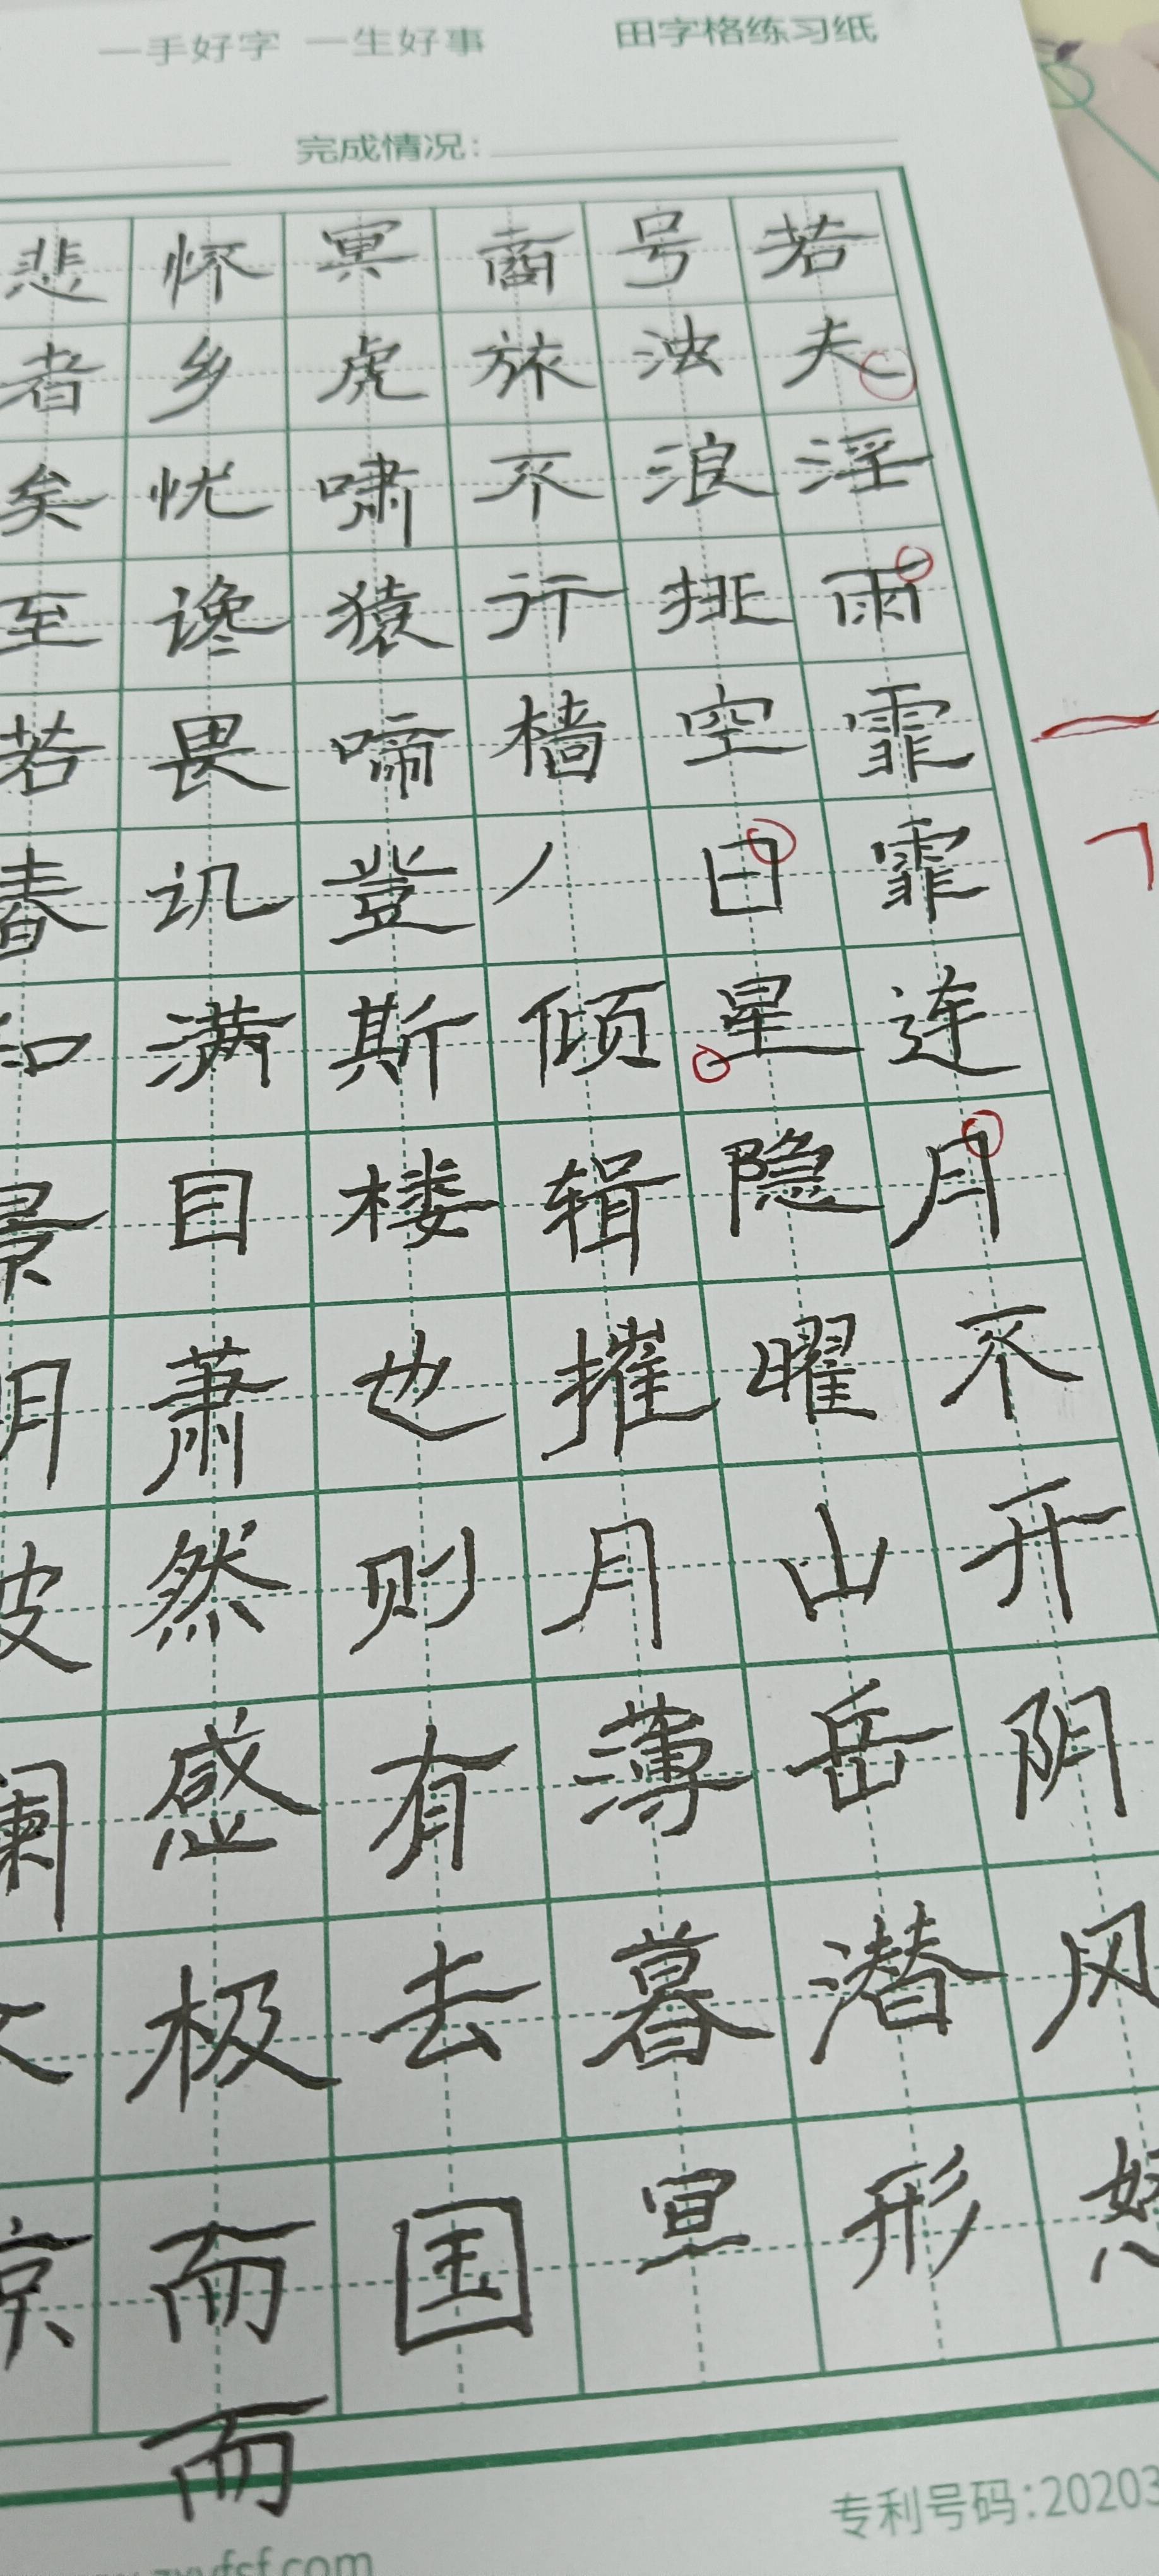 一手好字 一生好事
田字格练习纸
完成情况:
若夫淫雨霏霏连月不开阴风怒
号浊浪排空日星隐曜山岳潜形
商旅不行樯丿倾辑摧月薄暮
冥虎啸猿啼登斯楼也则有去国
怀乡忧谗畏讥满目萧然感极而而
悲者矣至若春和景明波澜不惊
专利号码:20203
zxyfsf.com